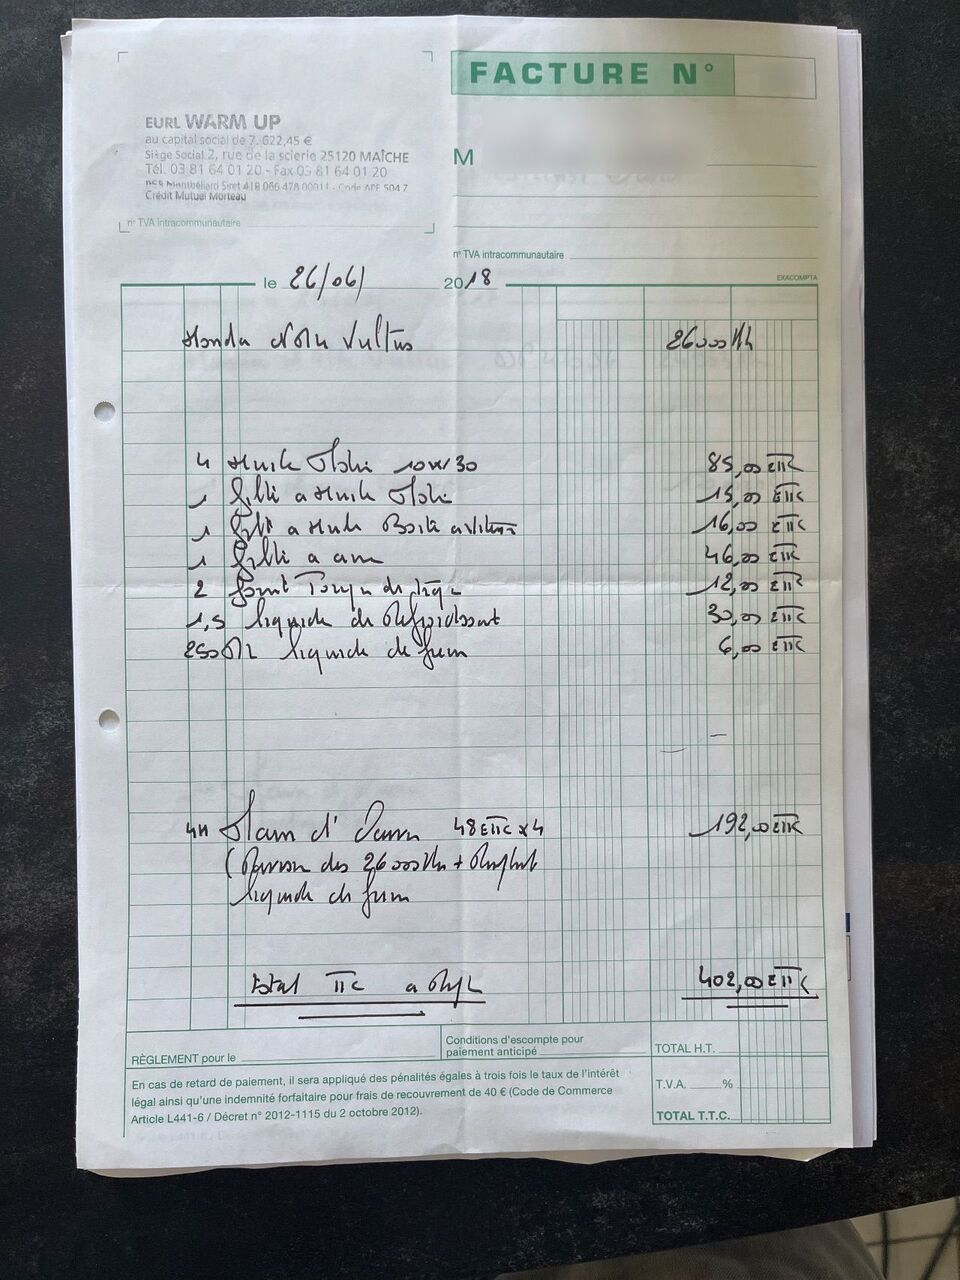 FACTURE N°
EURL WARM UP
au capital social de 7.622,45 €
Siège Social 2, rue de la scierie 25120 MAÎCHE
Tél. 03 81 64 01 20 - Fax 03 81 64 01 20
RCS Montbéliard Siret 418 066 478 00011 - Code APE 504 Z
Crédit Mutuel Morteau
M
n° TVA intracommunautaire
n° TVA intracommunautaire
le 26/06/ 2018
EXACOMPTA
Honda Vultus 26000
4 Huile 10W30 85,00 € TTC
1 a Huile 15,00 € TTC
1 a Huile Boite a vitesse 16,00 € TTC
1 a air 46,00 € TTC
2 Joint 12,00 € TTC
1,5 liquide de Refroidissement 30,00 € TTC
250 Ml liquide de frein 6,00 € TTC
4H Main d'Oeuvre 48 € TTC x 4 192,00 € TTC
(Revision des 26000 +
liquide de frein
total TTC a 402,00 € TTC
RÈGLEMENT pour le
Conditions d'escompte pour
paiement anticipé
TOTAL H.T.
En cas de retard de paiement, il sera appliqué des pénalités égales à trois fois le taux de l'intérêt
légal ainsi qu'une indemnité forfaitaire pour frais de recouvrement de 40 € (Code de Commerce
Article L441-6 / Décret n° 2012-1115 du 2 octobre 2012).
T.V.A. %
TOTAL T.T.C.